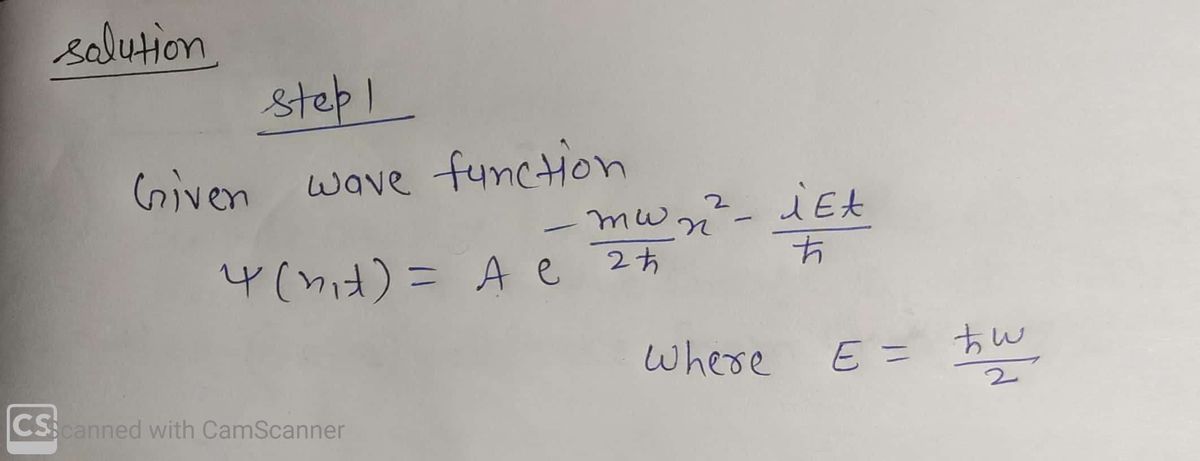 solution
step 1
Given wave function
ψ(x,t) = A e^{-\frac{mω}{2ħ}x² - \frac{iEt}{ħ}}
where E = \frac{ħω}{2}
CS Scanned with CamScanner